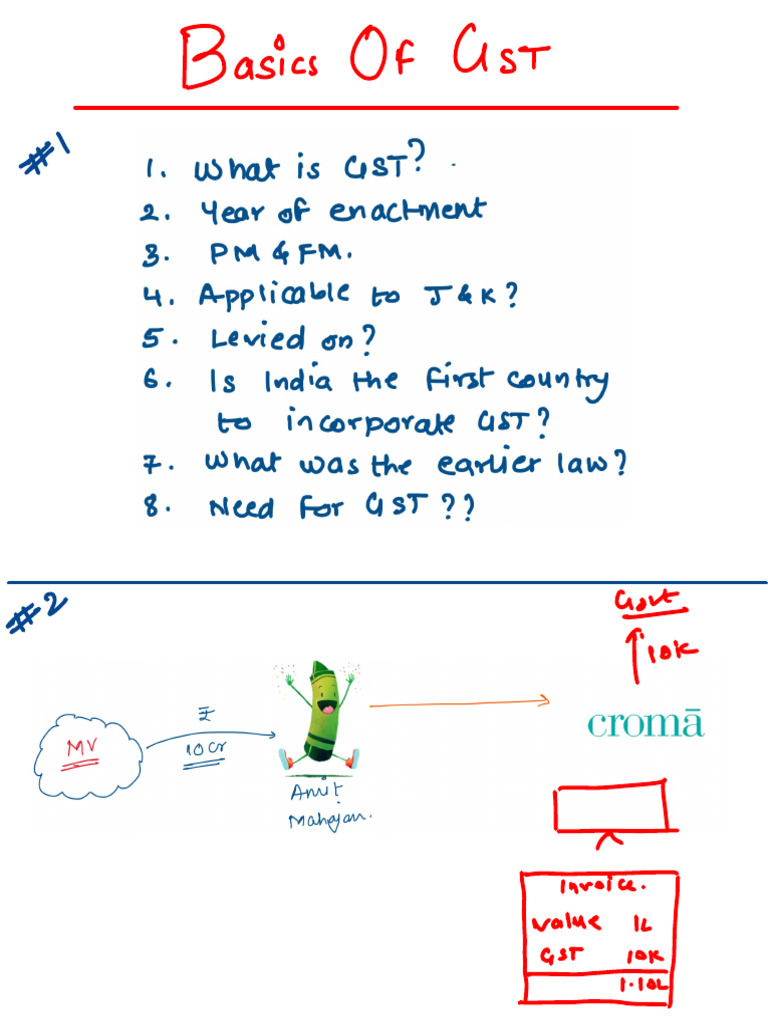 Basics Of GST
#1
1. What is GST?
2. Year of enactment
3. PM & FM.
4. Applicable to J & K?
5. Levied on?
6. Is India the first country
to incorporate GST?
7. What was the earlier law?
8. Need for GST??
#2
Govt
10K
cromā
₹
MV
10 Cr
Amit
Mahajan.
Invoice.
Value 1L
GST 10K
1.10L